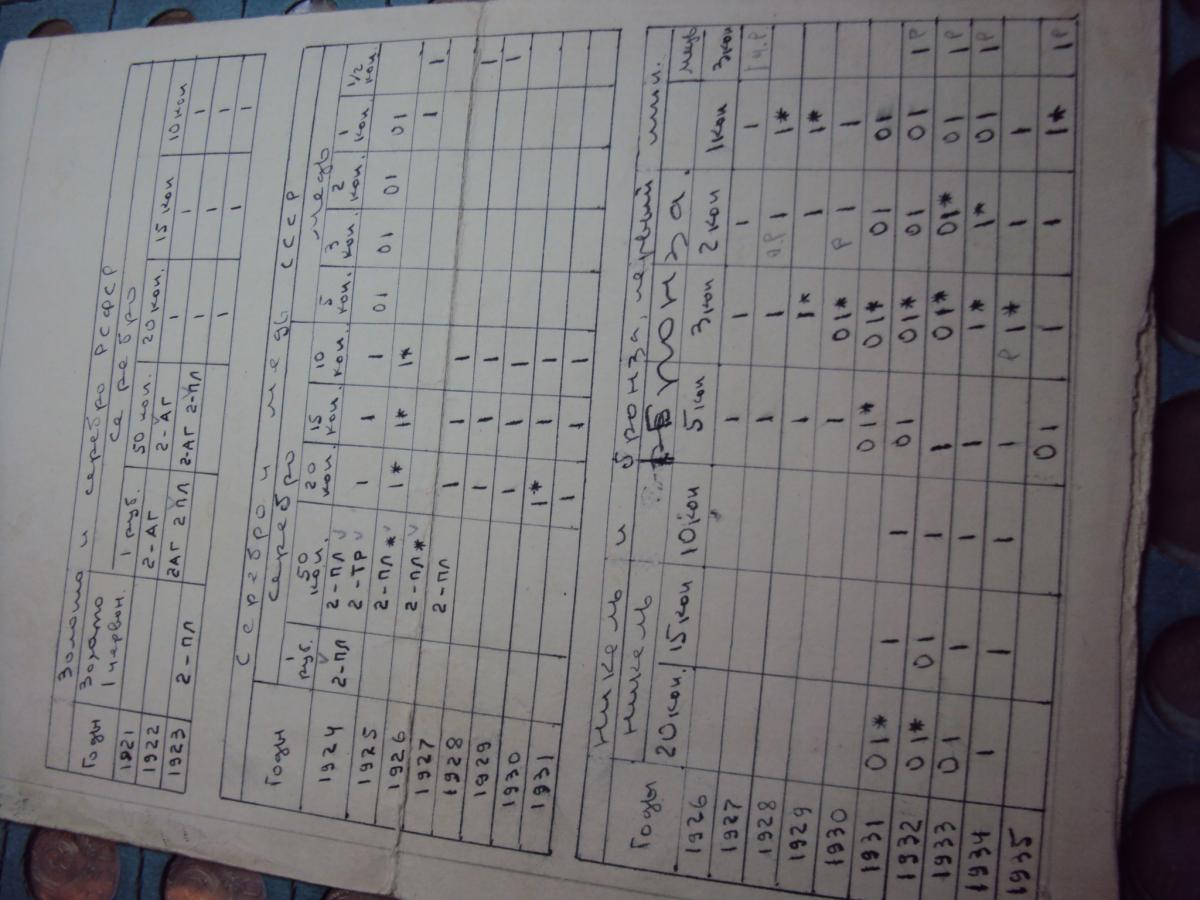 Золото и серебро РСФСР
Годы Золото 1 червон. серебро 1 руб. 50 коп. 20 коп. 15 коп 10 коп
1921 2-АГ 2-АГ 1 1 1
1922 2АГ 2ПЛ 2-АГ 2-ПЛ 1 1
1923 2-ПЛ 1 1 1
Серебро и медь СССР
серебро медь
Годы 1 руб. 50 коп. 20 коп. 15 коп. 10 коп. 5 коп. 3 коп. 2 коп. 1 коп. 1/2 коп.
1924 2-ПЛ 2-ПЛ 2-ТР 1 1 1 01 01 01 01
1925 2-ПЛ* 1* 1* 1* 1 1
1926 2-ПЛ*
1927 2-ПЛ 1 1 1 1
1928 1 1 1 1
1929 1 1 1
1930 1* 1 1
1931 1 1 1
Никель и бронза, первый тип.
никель бронза. медь
Годы 20 коп. 15 коп 10 коп 5 коп 3 коп 2 коп 1 коп 3 коп
1926 1 1 1 1 1 ч.Р
1927 1 1 ч.Р 1 1*
1928 1 1* 1 1*
1929 1 01* Р 1 1
1930 01* 01* 01 01
1931 01* 1 1 01 01* 01 01 1Р
1932 01* 01 1 1 01* 01* 01 1Р
1933 01 1 1 1 1* 1* 01 1Р
1934 1 1 1 1 Р 1* 1 1
1935 01 1 1 1* 1Р